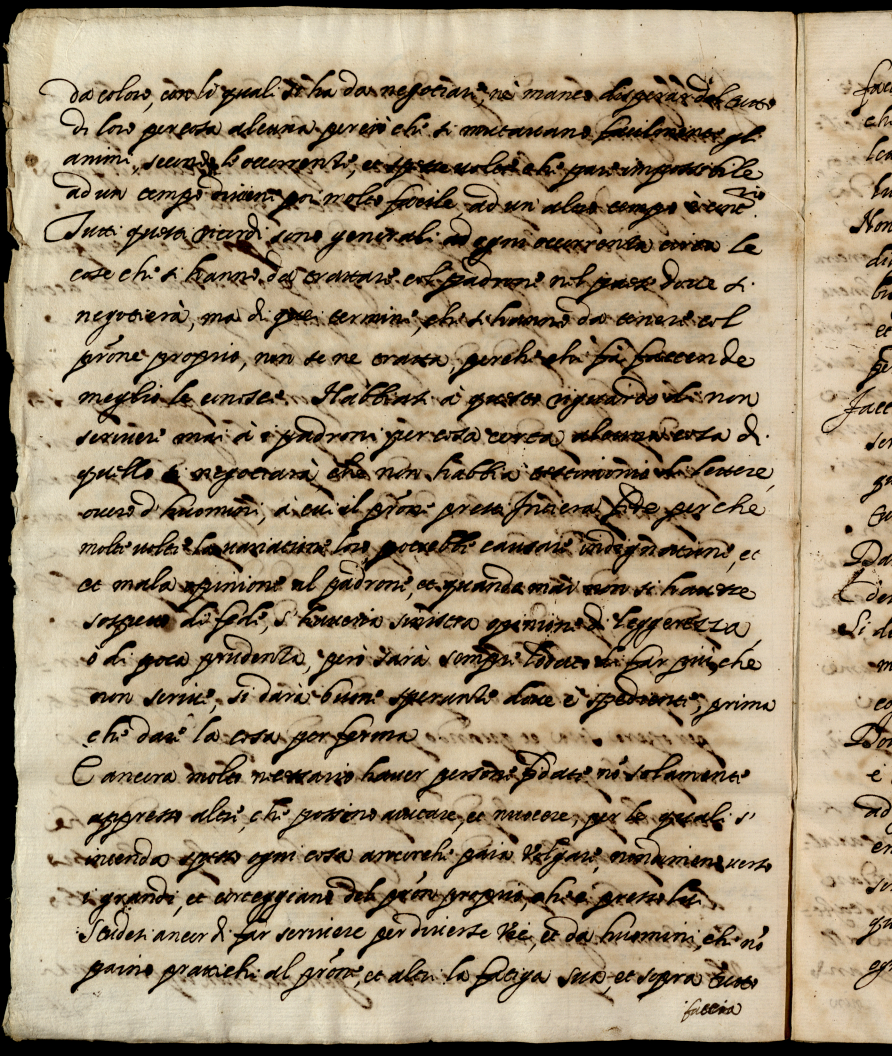 da coloro, con li quali si ha da negotiare, nè manco disperar del tutto
di loro per cosa alcuna perciò che si mutavano facilmente gli
animi, secondo le occorrentie, et spesse volte che pare impossibile
ad un tempo divien poi molto facile ad un altro tempo è contrio
Tutti questi ricordi sono generali ad ogni occorrentia circa le
cose che si hanno da trattare col padrone nel paese dove si
negotierà, ma di quei termini, che si hanno da tenere col
prõne proprio, non se ne tratta, perche chi fà faccende
meglio le conosce. Habbiasi à questo riguardo di non
scrivere mai à i padroni per cosa certa alcuna cosa di
quello si negotiarà, che non habbia testimonio di lettere,
overo d huomini, à cui il prõne presta Intiera fede perche
molte volte la variatione loro potrebbe causare indegnatione, et
et mala opinione al padrone, et quando mai non si havesse
sospetto di fede, s'haveria sinistra opinione di leggerezza,
ò di poca prudentia, però sarà sempre lodato di far più, che
non scrive, si darà buone sperante dove è spediente, prima
che dare la cosa per ferma
E ancora molto necessario haver persone fidate nõ solamente
appresso altri, che possino aiutare, et nuocere, per le quali s'
intenda spesso ogni cosa ancorche paia volgare, nondimeno verso
i grandi, et corteggiano del prõn proprio che è presso lui
Studisi ancor di far scrivere per diverse vie, et da huomini, che nõ
paino pratichi al prõne, et altri la fatiga sua, et sopra tutto
faccia
facc
che
Non
di
et
Facc
ser
Da
Li d
m
co
Don
è
ad
en
ser